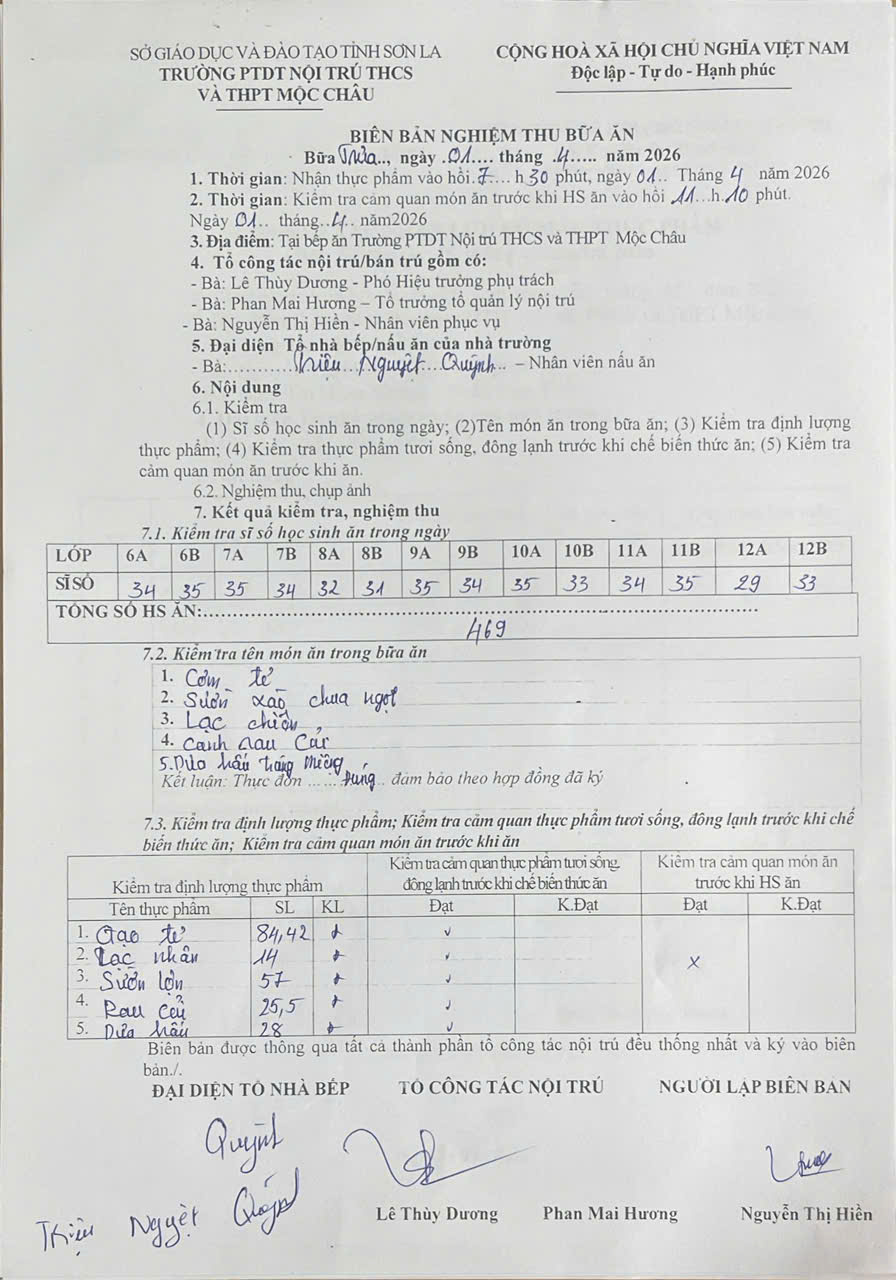 SỞ GIÁO DỤC VÀ ĐÀO TẠO TỈNH SƠN LA
TRƯỜNG PTDT NỘI TRÚ THCS
VÀ THPT MỘC CHÂU
CỘNG HOÀ XÃ HỘI CHỦ NGHĨA VIỆT NAM
Độc lập - Tự do - Hạnh phúc
BIÊN BẢN NGHIỆM THU BỮA ĂN
Bữa Trưa.., ngày .01.... tháng .4..... năm 2026
1. Thời gian: Nhận thực phẩm vào hồi.7.... h 30 phút, ngày 01.. Tháng 4 năm 2026
2. Thời gian: Kiểm tra cảm quan món ăn trước khi HS ăn vào hồi 11...h.10 phút.
Ngày 01.. tháng..4.. năm2026
3. Địa điểm: Tại bếp ăn Trường PTDT Nội trú THCS và THPT Mộc Châu
4. Tổ công tác nội trú/bán trú gồm có:
- Bà: Lê Thùy Dương - Phó Hiệu trưởng phụ trách
- Bà: Phan Mai Hương – Tổ trưởng tổ quản lý nội trú
- Bà: Nguyễn Thị Hiền - Nhân viên phục vụ
5. Đại diện Tổ nhà bếp/nấu ăn của nhà trường
- Bà:............Thiệu...Nguyệt....Quỳnh... – Nhân viên nấu ăn
6. Nội dung
6.1. Kiểm tra
(1) Sĩ số học sinh ăn trong ngày; (2)Tên món ăn trong bữa ăn; (3) Kiểm tra định lượng
thực phẩm; (4) Kiểm tra thực phẩm tươi sống, đông lạnh trước khi chế biến thức ăn; (5) Kiểm tra
cảm quan món ăn trước khi ăn.
6.2. Nghiệm thu, chụp ảnh
7. Kết quả kiểm tra, nghiệm thu
7.1. Kiểm tra sĩ số học sinh ăn trong ngày
LỚP 6A 6B 7A 7B 8A 8B 9A 9B 10A 10B 11A 11B 12A 12B
SĨ SỐ 34 35 35 34 32 31 35 34 35 33 34 35 29 33
TỔNG SỐ HS ĂN:..............................
469
7.2. Kiểm tra tên món ăn trong bữa ăn
1. Cơm tẻ
2. Sườn xào chua ngọt
3. Lạc chiên
4. Canh rau cải
5. Dưa hấu tráng miệng
Kết luận: Thực đơn ......đúng.. đảm bảo theo hợp đồng đã ký
7.3. Kiểm tra định lượng thực phẩm; Kiểm tra cảm quan thực phẩm tươi sống, đông lạnh trước khi chế
biến thức ăn; Kiểm tra cảm quan món ăn trước khi ăn
Kiểm tra định lượng thực phẩm
Kiểm tra cảm quan thực phẩm tươi sống,
đông lạnh trước khi chế biến thức ăn
Kiểm tra cảm quan món ăn
trước khi HS ăn
Tên thực phẩm SL KL Đạt K.Đạt Đạt K.Đạt
1. Gạo tẻ 84,42 ✓
2. Lạc nhân 14 ✓ X
3. Sườn lợn 57 ✓
4. Rau củ 25,5 ✓
5. Dưa hấu 28 ✓
Biên bản được thông qua tất cả thành phần tổ công tác nội trú đều thống nhất và ký vào biên
bản./.
ĐẠI DIỆN TỔ NHÀ BẾP TỔ CÔNG TÁC NỘI TRÚ NGƯỜI LẬP BIÊN BẢN
Quỳnh
Thiệu Nguyệt Quỳnh
Lê Thùy Dương Phan Mai Hương Nguyễn Thị Hiền